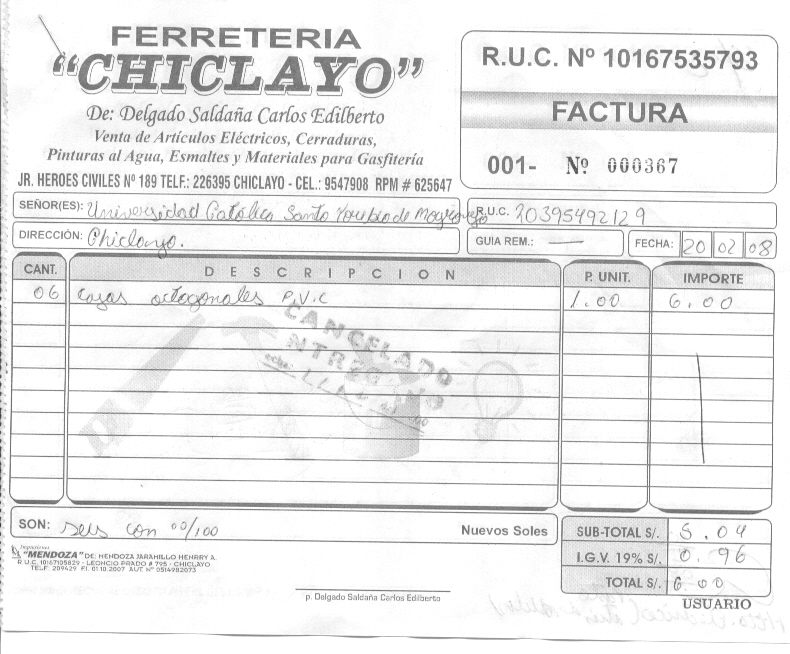 FERRETERIA
"CHICLAYO"
De: Delgado Saldaña Carlos Edilberto
Venta de Artículos Eléctricos, Cerraduras,
Pinturas al Agua, Esmaltes y Materiales para Gasfitería
JR. HEROES CIVILES Nº 189 TELF.: 226395 CHICLAYO - CEL.: 9547908 RPM # 625647
R.U.C. Nº 10167535793
FACTURA
001- Nº 000367
SEÑOR(ES): Universidad Católica Santo Toribio de Mogrovejo R.U.C. 20395492129
DIRECCIÓN: Chiclayo. GUIA REM.: — FECHA: 20 02 08
CANT. DESCRIPCION P. UNIT. IMPORTE
06 Cajas octogonales P.V.C 1.00 6.00
CANCELADO
SON: seis con 00/100 Nuevos Soles
SUB-TOTAL S/. 5.04
I.G.V. 19% S/. 0.96
TOTAL S/. 6.00
Impresiones
"MENDOZA" DE: MENDOZA JARAMILLO HENRRY A.
R.U.C. 10167105829 - LEONCIO PRADO # 795 - CHICLAYO
TELF: 209429 FI. 01.10.2007 AUT. Nº 0514982073
p. Delgado Saldaña Carlos Edilberto
USUARIO